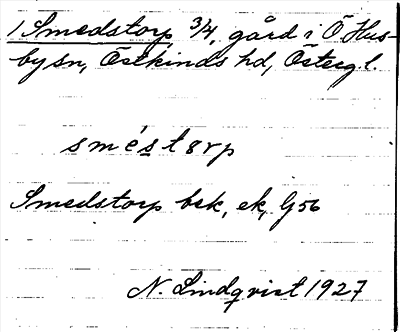 1 Smedstorp 3/4, gård i Ö. Hus-
bysn, Östkinds hd, Östergl.
smést8rp
Smedstorp bek, ek, G56
N. Lindqvist 1927